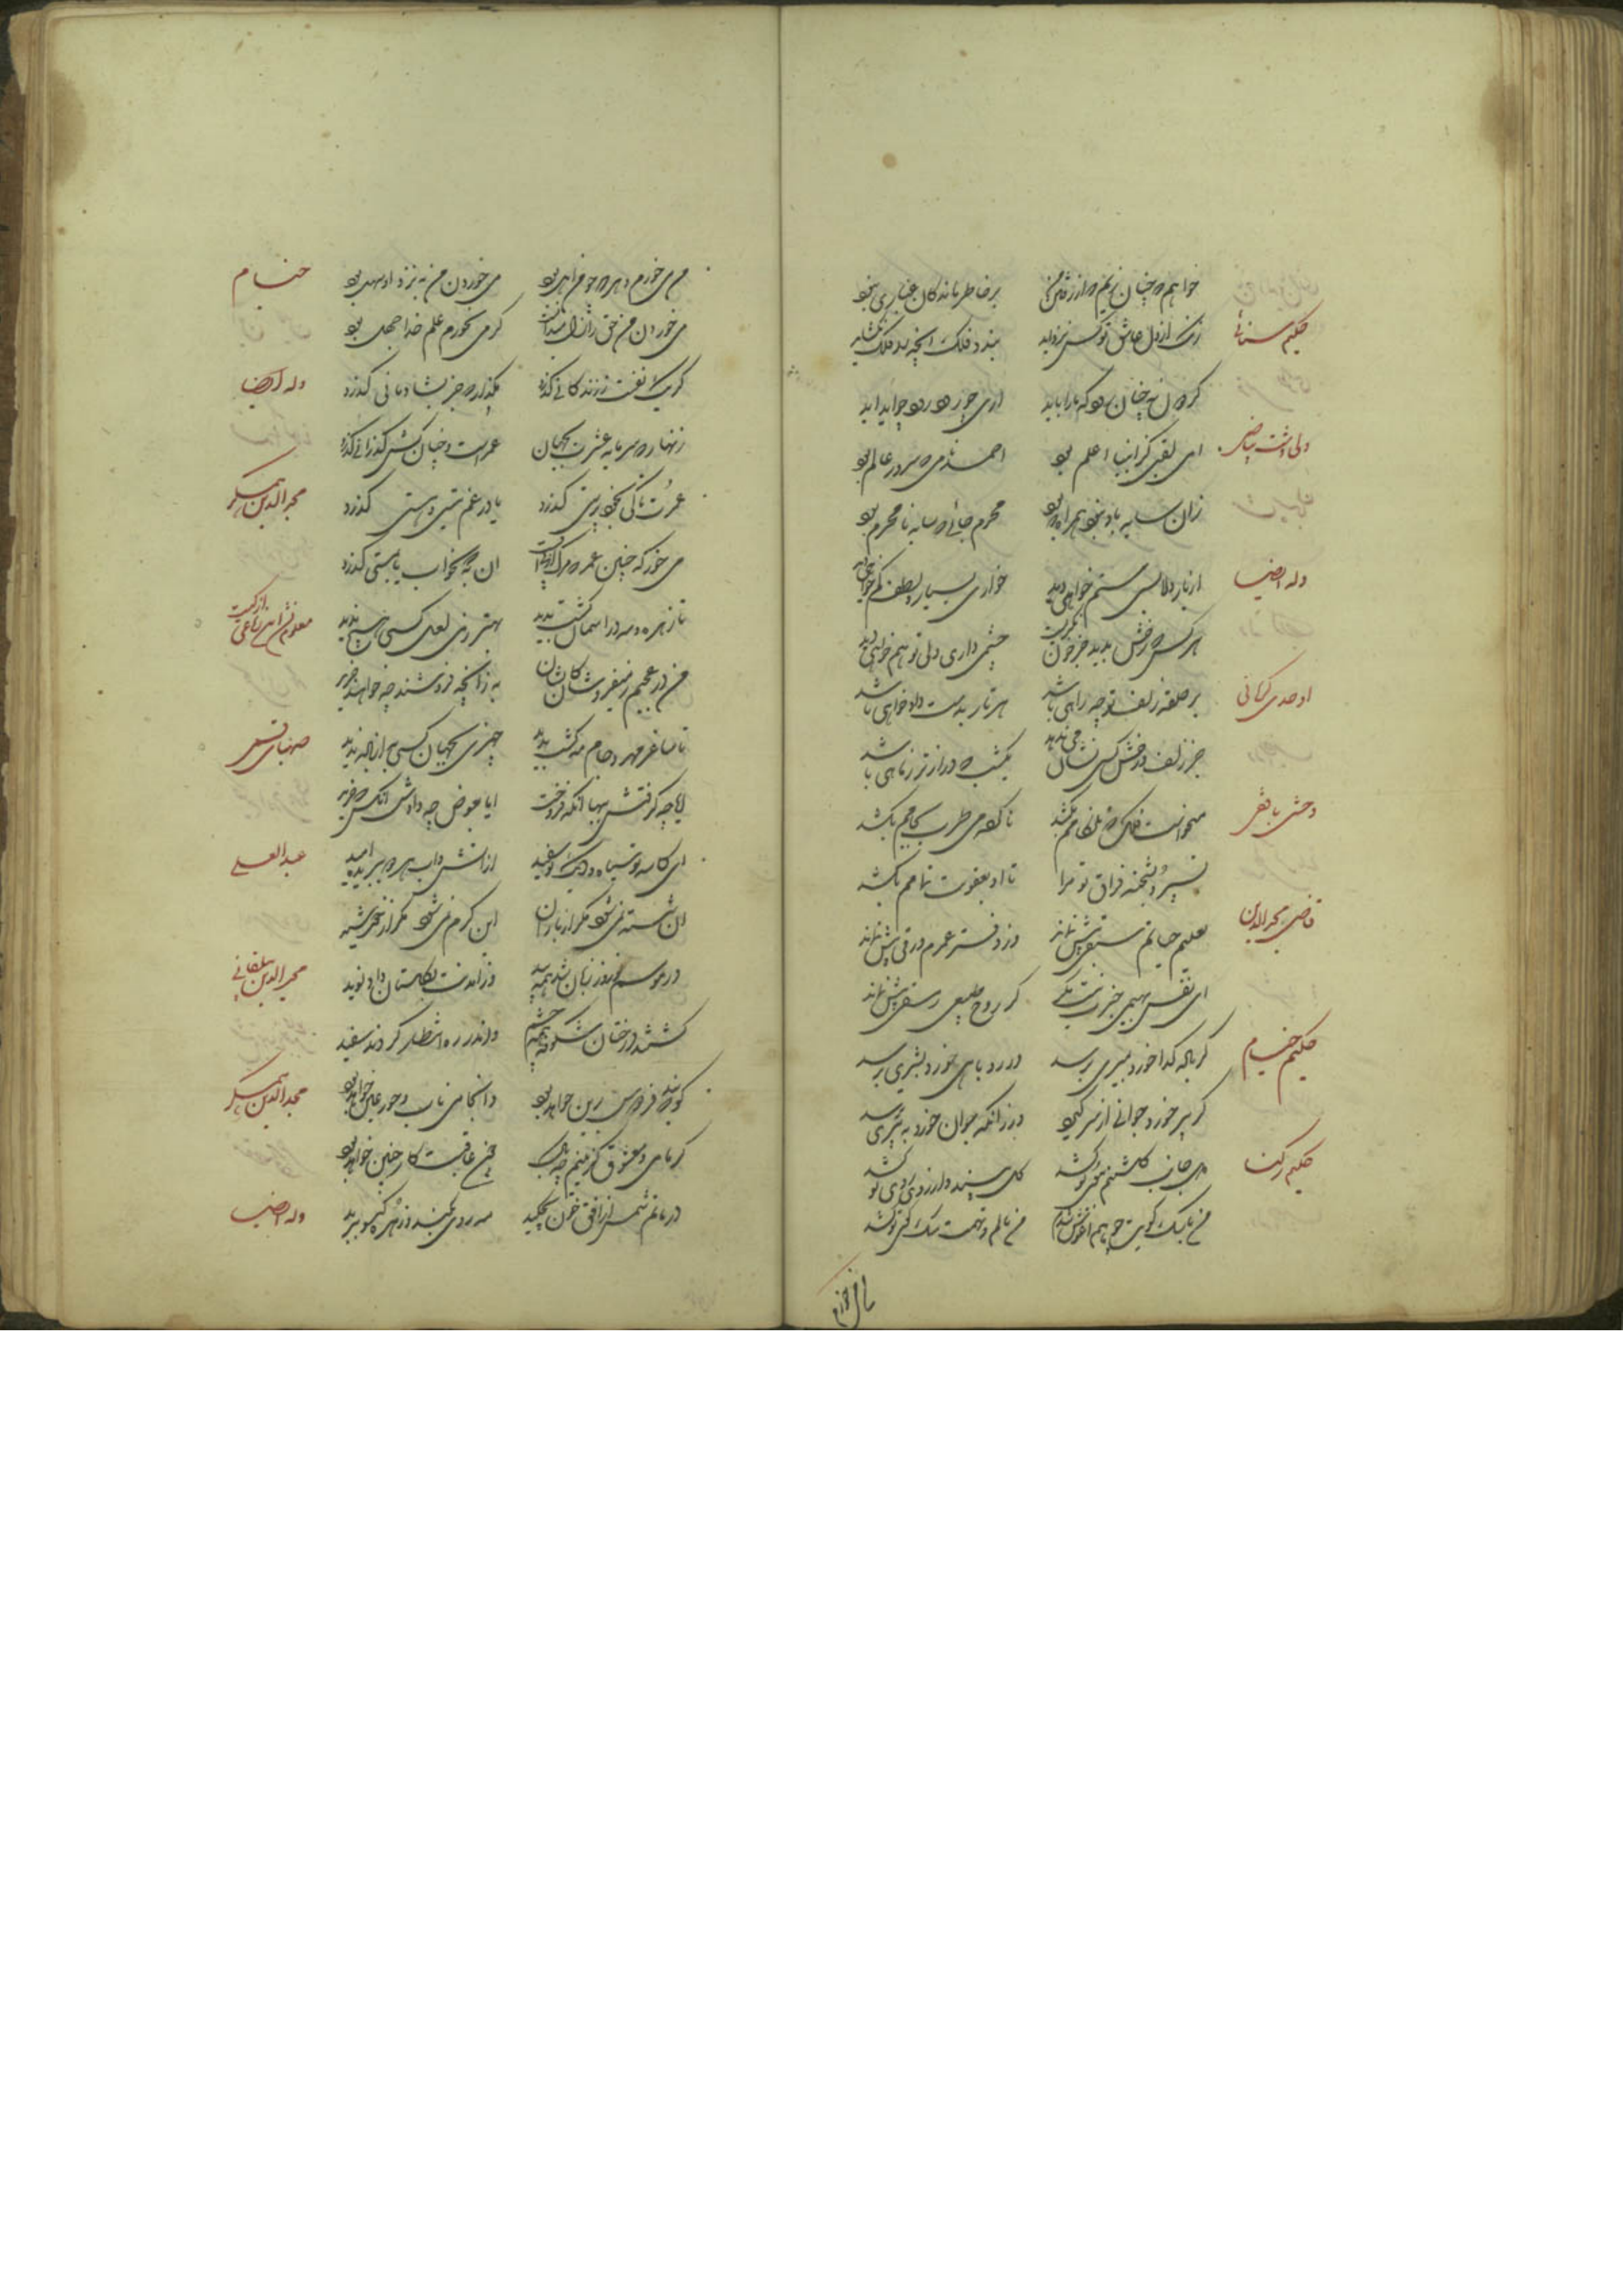 خواهم که چنان زیم که از رفتن من بر خاطر ماندگان غباری نبود
حکیم سنائی
زنگ از دل عاشق تو کس نزداید بندد فلک آنچه بد فلک نگشاید
ار
ولی دشت بیاضی
ای لقبی کز انبیا اعلم بود احمد نامی که سرور عالم بود
زان سایه باو نبود همراه که بود محرم جائی که سایه نامحرم بود
وله ایضا
از یار دلا بسی ستم خواهی دید خواری بسیار و لطف کم خواهی دید
هر کس که رخش بدید جز خون نگریست چشمی داری ولی تو هم خواهی دید
اوحدی کرمانی
بر حلقه زلف تو چه راهی باشد هر تار بدست دادخواهی باشد
جز زلف و رخش کس نشان می ندهد یکشب که درازتر ز ماهی باشد
وحشی بافقی
میخواست فلک که تلخ کامم بکشد ناکرده می طرب بجامم بکشد
بسپرد بشحنه فراق تو مرا تا او بعقوبت تمامم بکشد
قاضی مجدالدین
تعلیم حیاتم سبقی بیش نماند وز دفتر عمرم ورقی بیش نماند
ای نفس بهیمی خبرت نیست مگر کز روح طبیعی رمقی بیش نماند
حکیم خیام
گر باده گدا خورد بمیری برسد ور روباهی خورد بشیری برسد
گر پیر خورد جوانی از سر گیرد ور زانکه جوان خورد به پیری برسد
حکیم رکنا
من با سگ کویت چو بهم آغوش شدم من نالم و تهمت سگ کوی تو کشد
خیام
من می خورم و هر که چو من اهل بود می خوردن من به نزد او سهل بود
می خوردن من حق ز ازل میدانست گر می نخورم علم خدا جهل بود
وله ایضا
گر یک نفست ز زندگانی گذرد مگذار که جز بشادمانی گذرد
زنهار که سرمایه عشرت بجهان عمر است و چنان کش گذرانی گذرد
مجدالدین همگر
عمرت تا کی بخود پرستی گذرد یا در غم نیستی و هستی گذرد
می خور که چنین عمر که مرگ از پی اوست آن به که بخواب یا بمستی گذرد
معلوم نشد این رباعی از کیست
تا زهره و مه در آسمان گشت پدید بهتر ز می لعل کسی هیچ ندید
من در عجبم ز میفروشان کایشان به زآنچه فروشند چه خواهند خرید
صهبای قمی
تا ساغر مهر و جام مه گشت پدید چیزی بجهان کسی به از باده ندید
آیا چه گرفتش ببها آنکه فروخت آیا بعوض چه دادش آنکس که خرید
عبدالعلی
ای کاسه تو سیاه و دیگ تو سفید از آتش و آب هر دو ببریده امید
آن شسته نمی شود مگر از باران این گرم نمی شود مگر از خورشید
مجیرالدین بیلقانی
در موسم نوروز زبان شد همه بید وز آمدنت بگلستان داد نوید
گشتند درختان شکوفه همه چشم واندر ره انتظار کردند سفید
مجدالدین همگر
گویند که فردوس برین خواهد بود وآنجا می ناب و حور عین خواهد بود
گر ما می و معشوق گزیدیم چه باک چون عاقبت کار چنین خواهد بود
وله ایضا
در ماتم شمس از افق خون بچکید مه روی بکند و زهره گیسو ببرید